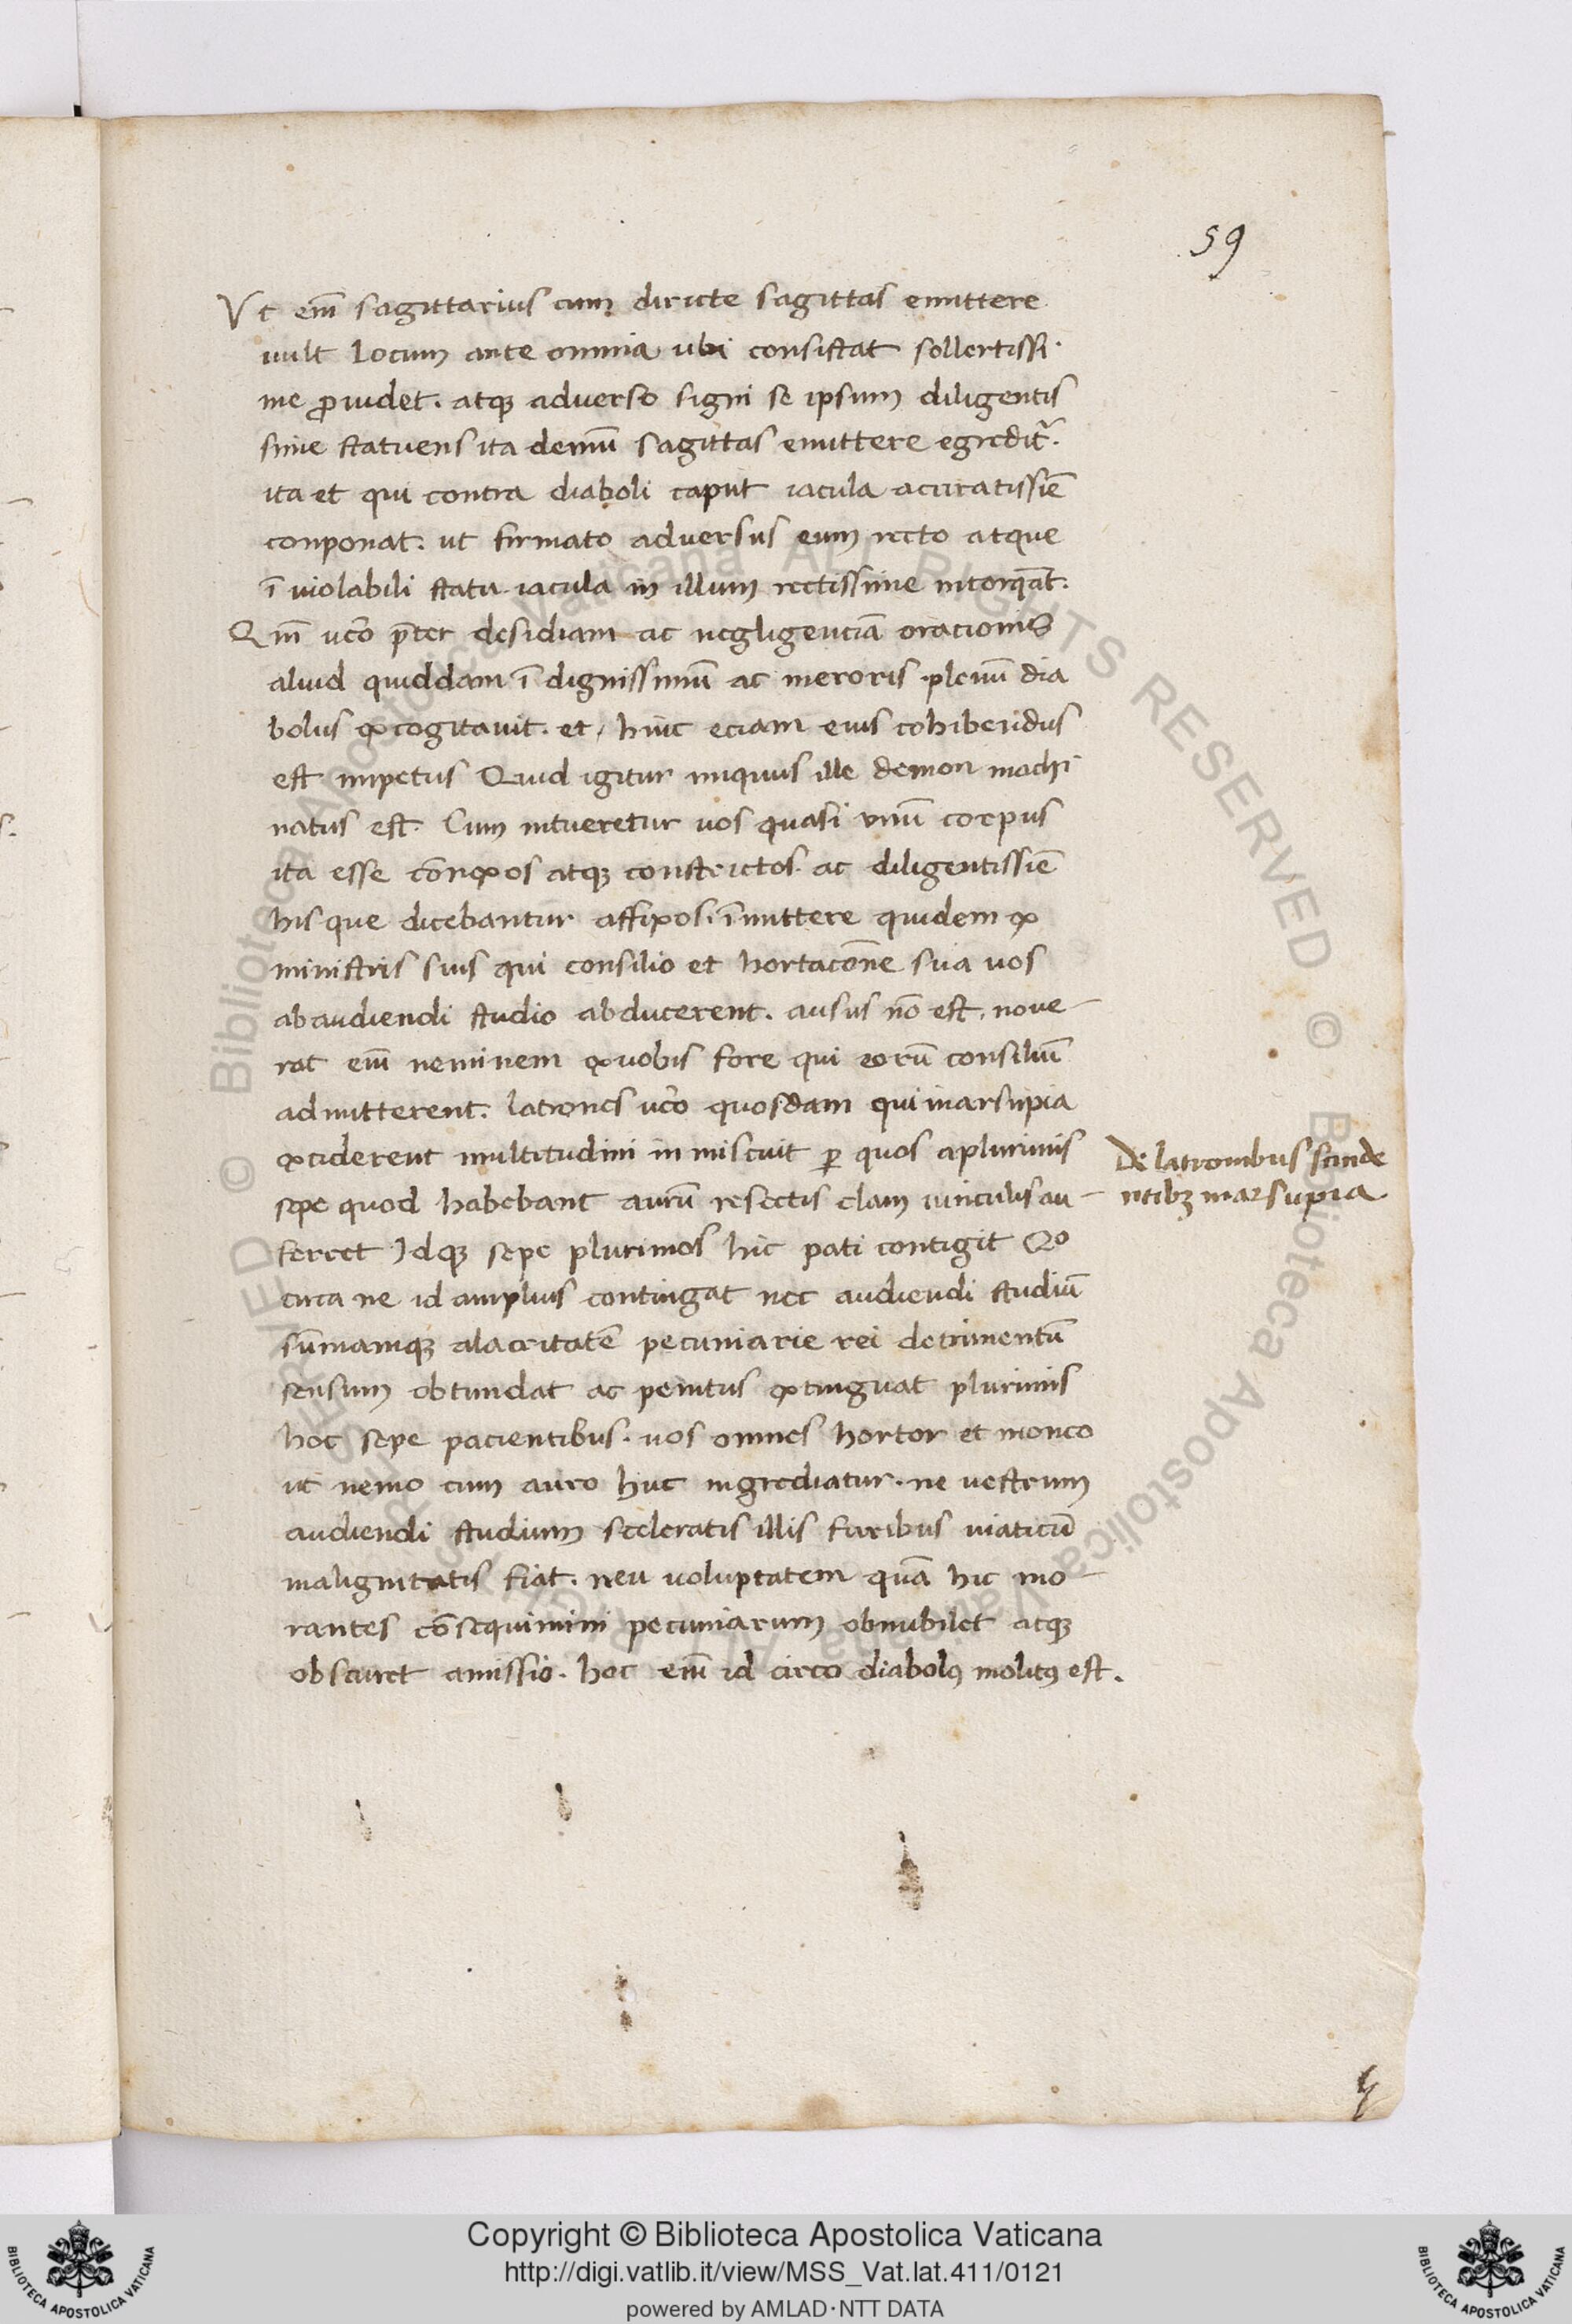 59
Vt em̄ sagittarius cum diricte sagittas emittere
uult locum ante omnia ubi consistat sollertissi-
me ꝓuidet. atqꝫ aduerso signi se ipsum diligentis
sime statuens ita demū sagittas emittere egredit̄.
ita et qui contra diaboli caput iacula accuratissīe
conponat. ut firmato aduersus eum recto atque
ī uiolabili statu iacula in illum rectissime intorqāt.
Qm̄ uero p̄ter desidiam ac negligenciā oracionis
aliud quiddam ī dignissimū ac meroris plenū dia
bolus excogitauit. et hinc eciam eius cohibendus
est impetus Quid igitur iniquus ille demon machi
natus est. Cum intueretur uos quasi vnū corpus
ita esse cōnexos atqꝫ constrictos. ac diligentissīe
his que dicebantur affixos. īmittere quidem ex
ministris suis qui consilio et hortacōne sua uos
ab audiendi studio abducerent. ausus nō est. noue-
rat em̄ neminem ex uobis fore qui eorū consiliū
admitterent. latrones uero quosdam qui marsupia
exciderent multitudini inmiscuit ꝑ quos a plurimis
sepe quod habebant aurū resectis clam uinculis au-
ferret Idqꝫ sepe plurimos hic pati contigit Quo
circa ne id amplius contingat nec audiendi studiū
sūmamqꝫ alacritatē pecuniarie rei detrimentū
sensum obtundat ac penitus extinguat plurimis
hoc sepe pacientibus. uos omnes hortor et moneo
ut nemo cum auro huc ingrediatur. ne uestrum
audiendi studium sceleratis illis furibus uiaticū
malignitatis fiat. neu uoluptatem quā hic mo-
rantes cōsequimini pecuniarum obnubilet atqꝫ
obscuret amissio. hoc em̄ id circo diabolꝰ molitꝰ est.
De latronibus scinde
ntibꝫ marsupia
© Biblioteca Apostolica Vaticana ALL RIGHTS RESERVED © Biblioteca Apostolica Vaticana ALL RIGHTS RESERVED
Copyright © Biblioteca Apostolica Vaticana
http://digi.vatlib.it/view/MSS_Vat.lat.411/0121
powered by AMLAD·NTT DATA
BIBLIOTECA APOSTOLICA VATICANA
BIBLIOTECA APOSTOLICA VATICANA